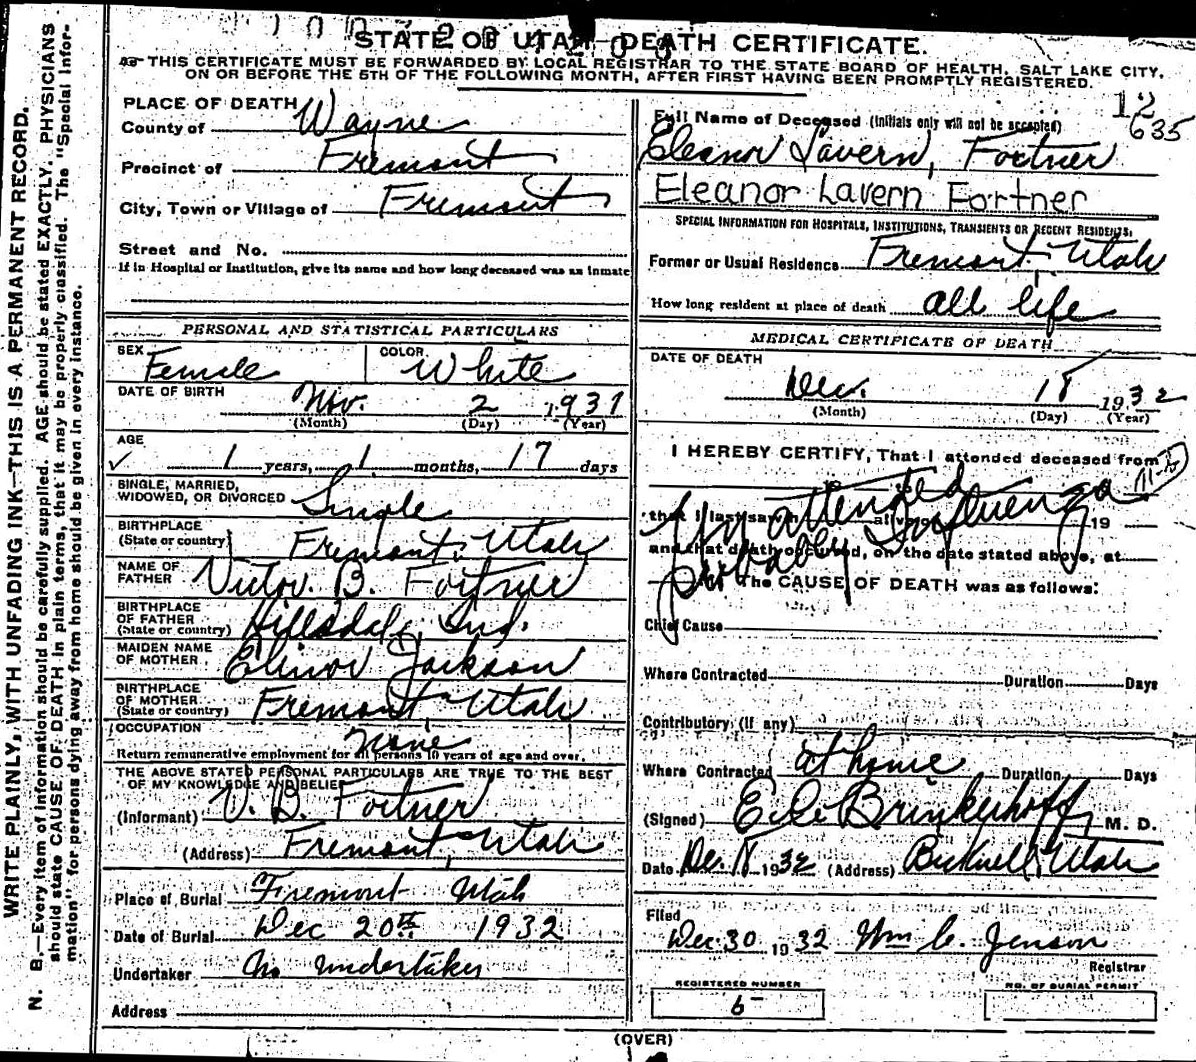 STATE OF UTAH—DEATH CERTIFICATE.
THIS CERTIFICATE MUST BE FORWARDED BY LOCAL REGISTRAR TO THE STATE BOARD OF HEALTH, SALT LAKE CITY,
ON OR BEFORE THE 5TH OF THE FOLLOWING MONTH, AFTER FIRST HAVING BEEN PROMPTLY REGISTERED.
WRITE PLAINLY, WITH UNFADING INK—THIS IS A PERMANENT RECORD.
N. B.—Every item of information should be carefully supplied. AGE should be stated EXACTLY. PHYSICIANS
should state CAUSE OF DEATH in plain terms, that it may be properly classified. The "Special Infor-
mation" for persons dying away from home should be given in every instance.
PLACE OF DEATH
County of Wayne
Precinct of Fremont
City, Town or Village of Fremont
Street and No.
If in Hospital or Institution, give its name and how long deceased was an inmate
PERSONAL AND STATISTICAL PARTICULARS
SEX Female COLOR White
DATE OF BIRTH Nov. 2 1931
(Month) (Day) (Year)
AGE
✓ 1 years, 1 months, 17 days
SINGLE, MARRIED,
WIDOWED, OR DIVORCED Single
BIRTHPLACE
(State or country) Fremont, Utah
NAME OF
FATHER Victor B. Fortner
BIRTHPLACE
OF FATHER
(State or country) Hillsdale, Ind.
MAIDEN NAME
OF MOTHER Elinor Jackson
BIRTHPLACE
OF MOTHER
(State or country) Fremont Utah
OCCUPATION None
Return remunerative employment for all persons 10 years of age and over.
THE ABOVE STATED PERSONAL PARTICULARS ARE TRUE TO THE BEST
OF MY KNOWLEDGE AND BELIEF
(Informant) V. B. Fortner
(Address) Fremont, Utah
Place of Burial Fremont Utah
Date of Burial Dec 20th 1932
Undertaker No undertaker
Address
12
635
Full Name of Deceased (Initials only will not be accepted)
Eleanor Lavern, Fortner
Eleanor Lavern Fortner
SPECIAL INFORMATION FOR HOSPITALS, INSTITUTIONS, TRANSIENTS OR RECENT RESIDENTS.
Former or Usual Residence Fremont, Utah
How long resident at place of death all life
MEDICAL CERTIFICATE OF DEATH
DATE OF DEATH
Dec. 18 1932
(Month) (Day) (Year)
I HEREBY CERTIFY, That I attended deceased from
that I last saw h alive on 19
and that death occurred, on the date stated above, at
The CAUSE OF DEATH was as follows:
attended
Influenza
probably
Chief Cause
Where Contracted Duration Days
Contributory (if any)
Where Contracted at home Duration Days
(Signed) Brinkerhoff M. D.
Date Dec. 18 1932 (Address) Bicknell, Utah
Filed
Dec. 30 1932 Wm C. Jenson
Registrar
REGISTERED NUMBER
6
NO. OF BURIAL PERMIT
(OVER)